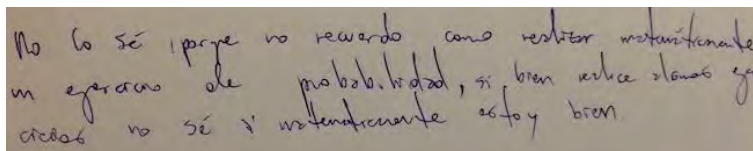 No lo sé, porqe no recuerdo como realizar matemáticamente
un ejercicio de probabilidad, si bien realice algunos eje
cicios no sé si matematicamente estoy bien